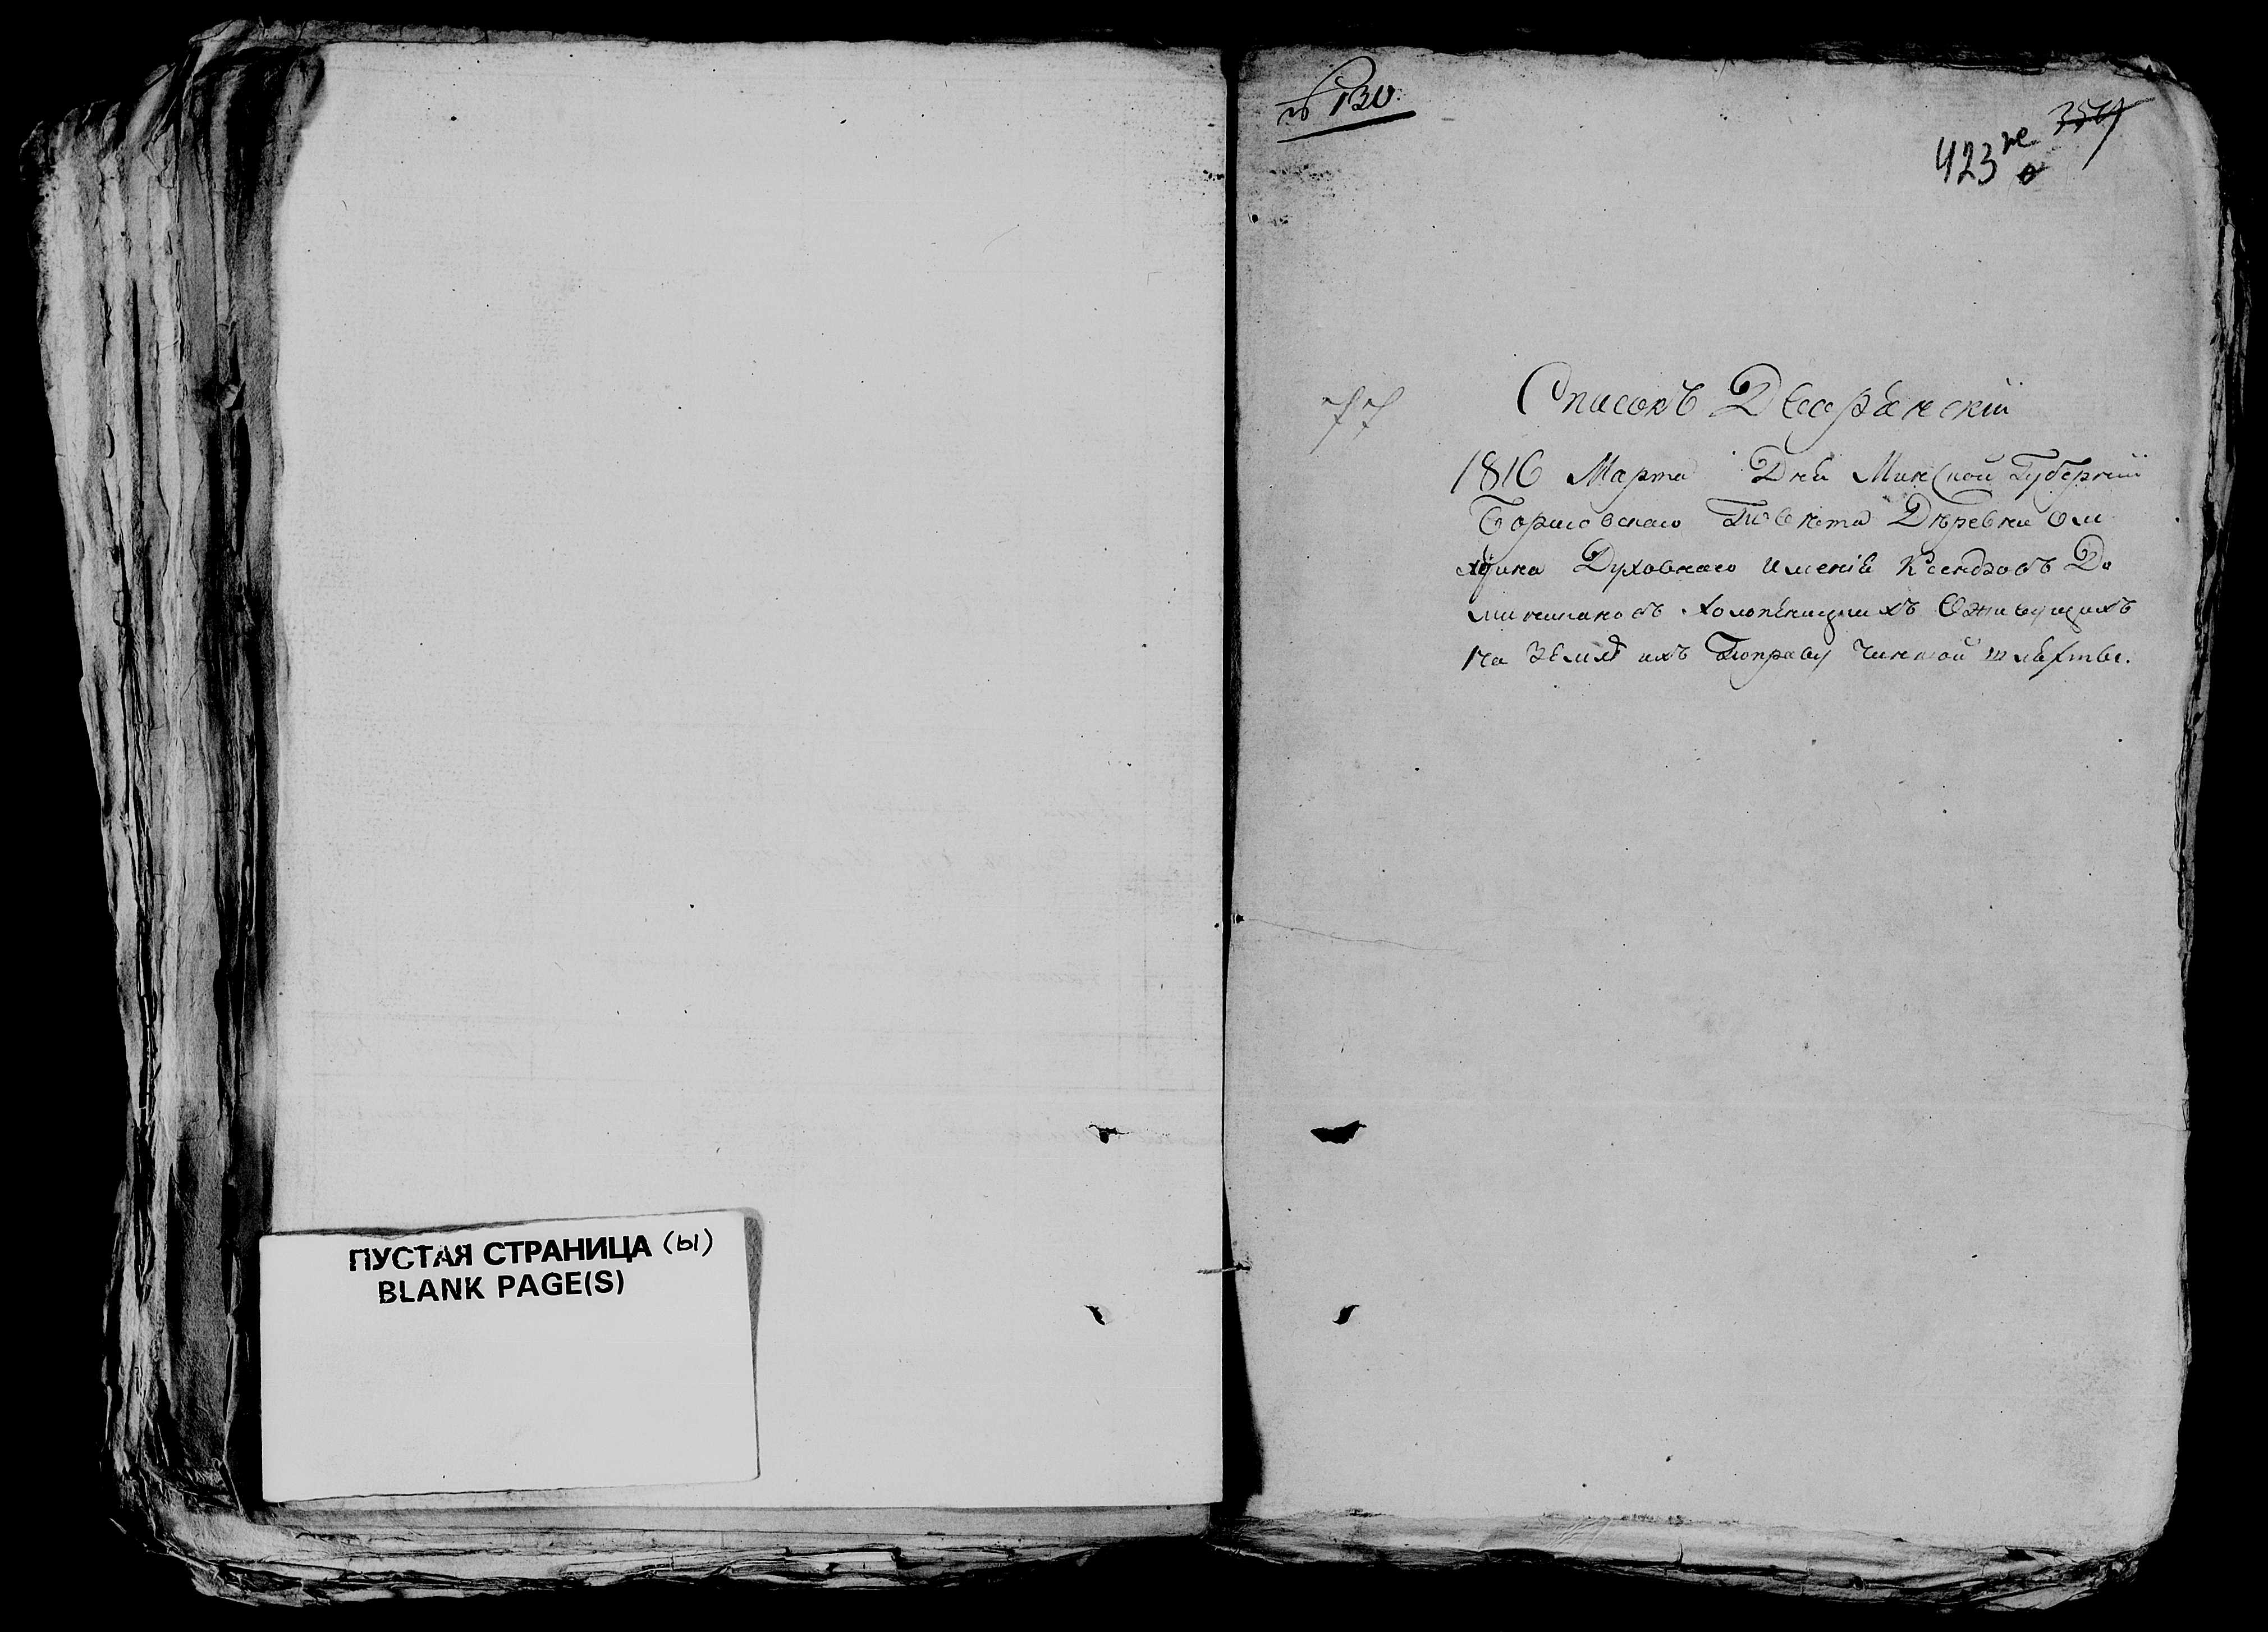 ПУСТАЯ СТРАНИЦА (ы)
BLANK PAGE(S)
№ 130.
423
77
Списокъ Дворянскій
1816 Марта Дня Минской Губерніи
Борисовскаго Повѣта Дѣревни
Духовнаго имѣнія Ксендзовъ До
миникановъ Холопеницкихъ
На Землѣ ихъ Поправу Чинжой шлѣхты.